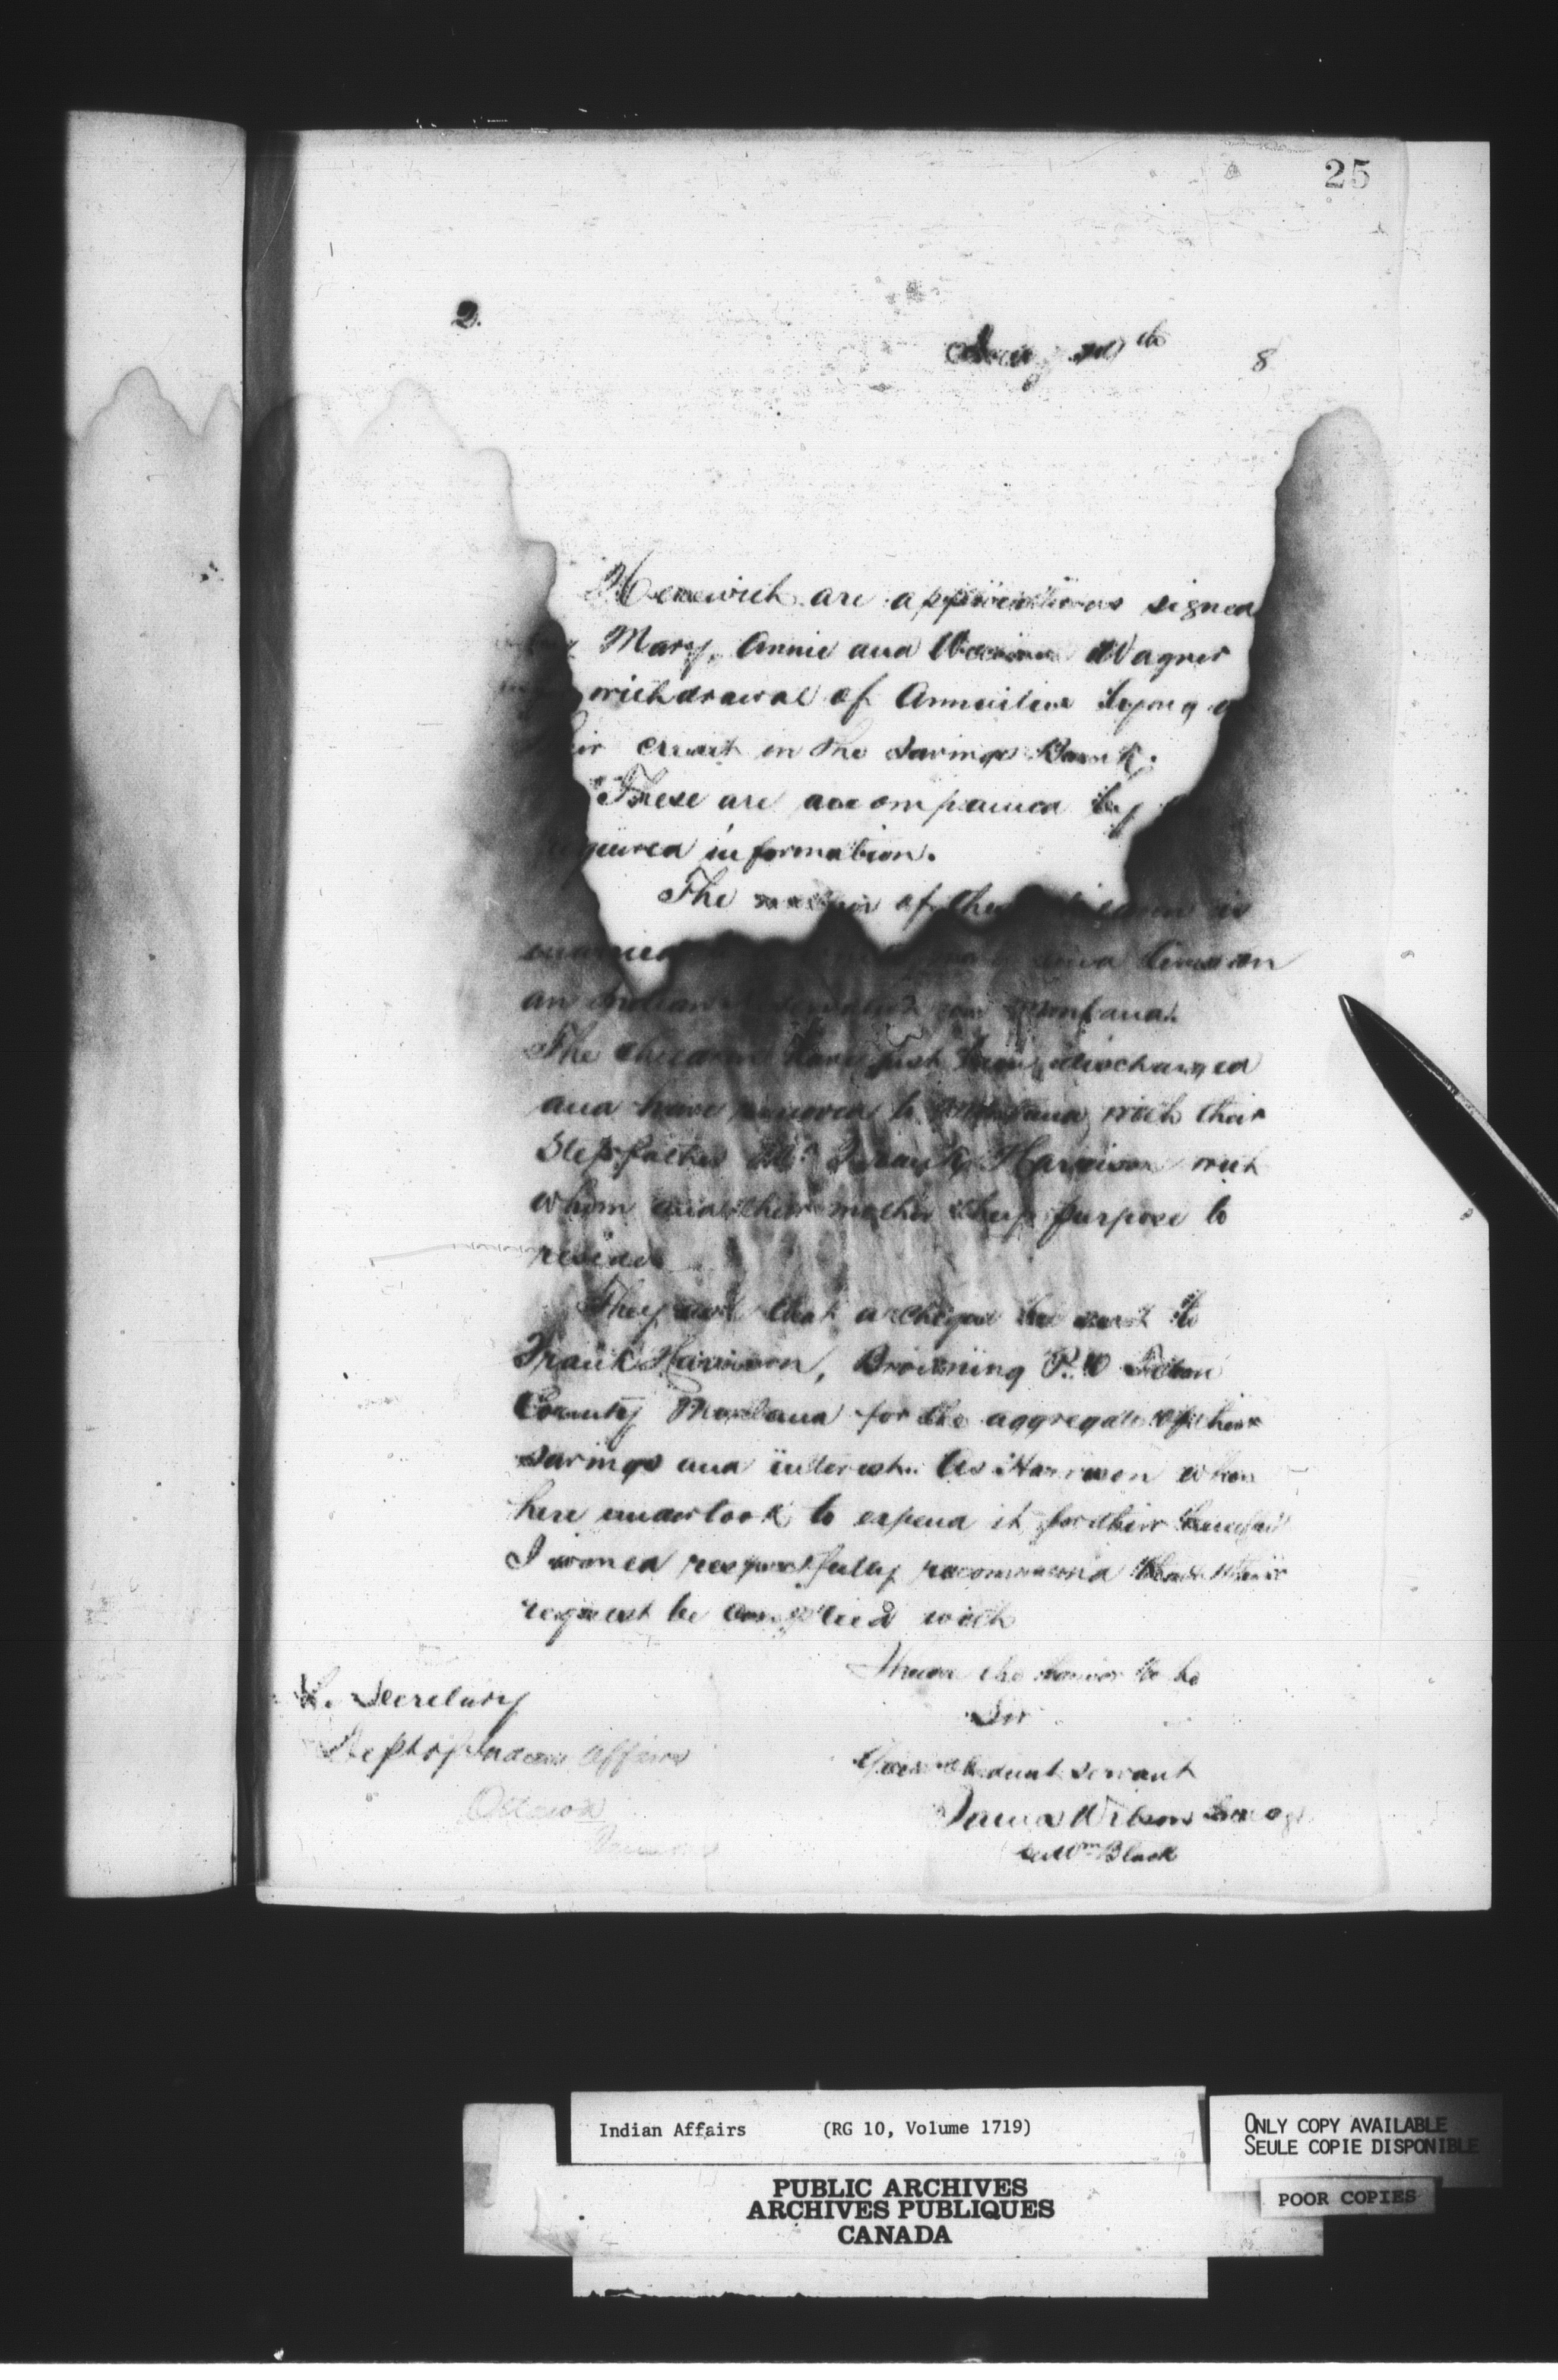 25
2.
8
Herewith are applications signed
by Mary, Annie and Wagner
withdrawal of Annuities lying
their credit in the Savings Bank.
These are accompanied by
required information.
The of the children is
married
an Indian Montana.
The children have just been discharged
and have removed to Montana with their
Stepfather Mr. Frank Harrison with
whom and their mother they purpose to
reside
They ask that a cheque be sent to
Frank Harrison, Browning P.O Teton
County Montana for the aggregate of their
savings and interest. As Harrison when
here undertook to expend it for their benefit
I would respectfully recommend that their
request be complied with
I have the honor to be
Sir
Your obedient servant
James Wilson Ind Agt
per Wm Black
The Secretary
Dept of Indian Affairs
Ottawa
Indian Affairs (RG 10, Volume 1719)
PUBLIC ARCHIVES
ARCHIVES PUBLIQUES
CANADA
ONLY COPY AVAILABLE
SEULE COPIE DISPONIBLE
POOR COPIES